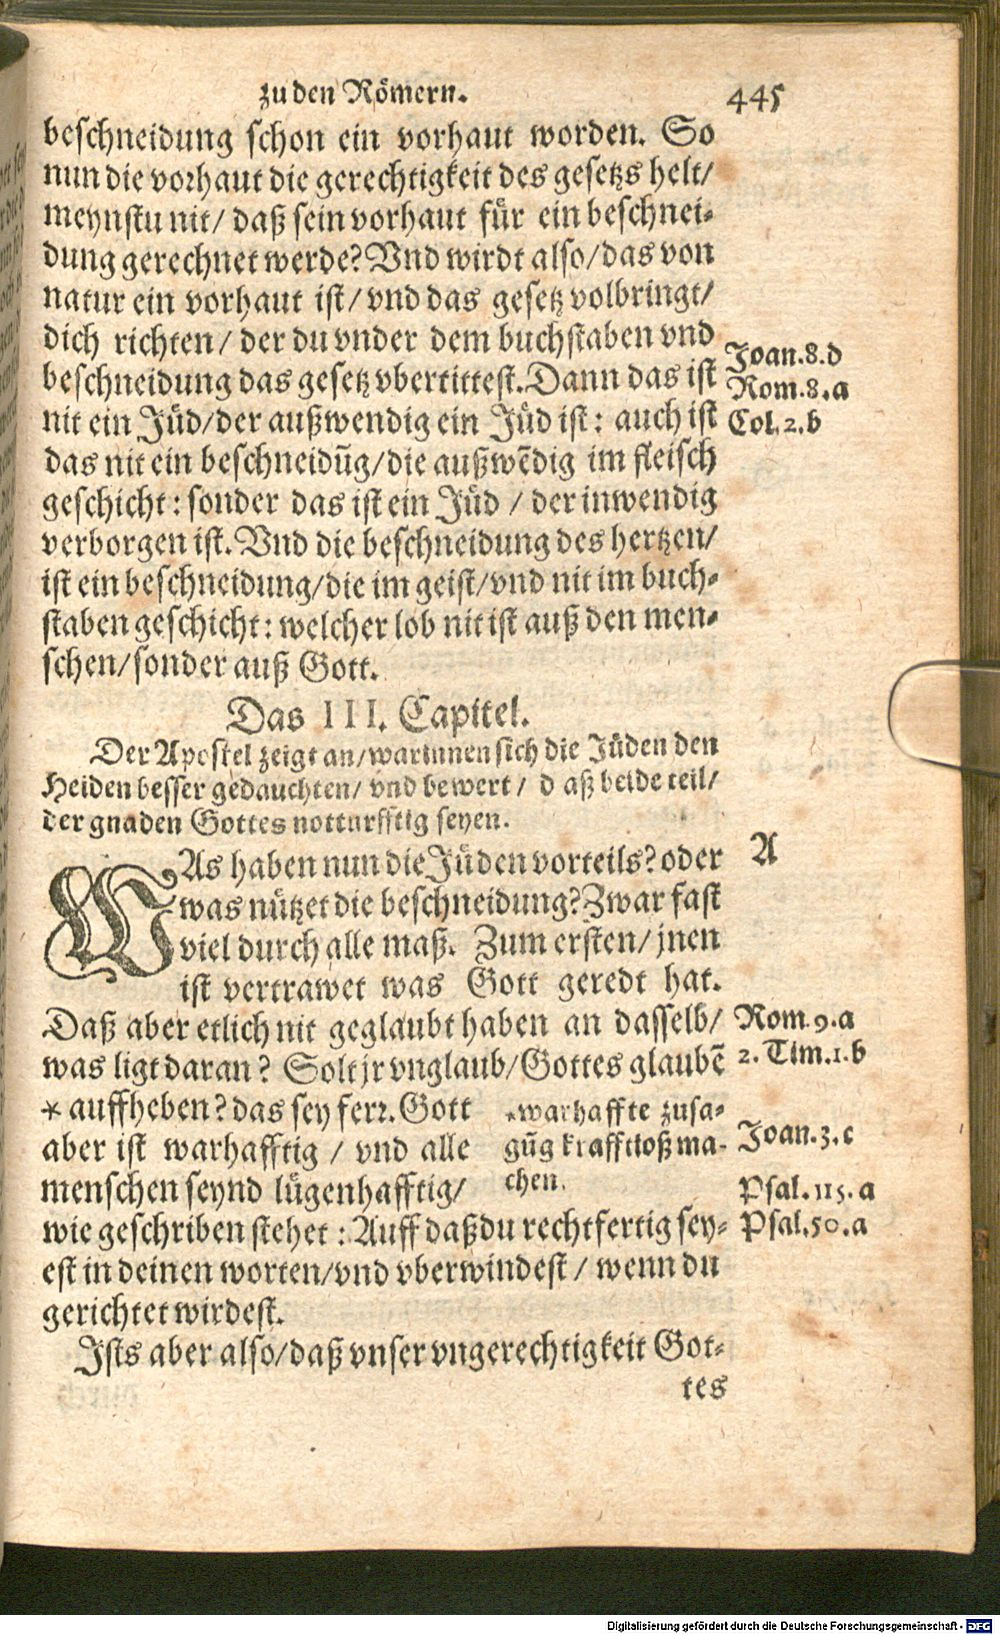 zu den Römern. 445
beschneidung schon ein vorhaut worden. So
nun die vorhaut die gerechtigkeit des gesetzs helt/
meynstu nit/ daß sein vorhaut für ein beschnei-
dung gerechnet werde? Vnd wirdt also/ das von
natur ein vorhaut ist/ vnd das gesetz volbringt/
dich richten/ der du vnder dem buchstaben vnd
beschneidung das gesetz vbertittest. Dann das ist
nit ein Jüd/ der außwendig ein Jüd ist: auch ist
das nit ein beschneidūg/ die außwēdig im fleisch
geschicht: sonder das ist ein Jüd / der inwendig
verborgen ist. Vnd die beschneidung des hertzen/
ist ein beschneidung/ die im geist/ vnd nit im buch-
staben geschicht: welcher lob nit ist auß den men-
schen/ sonder auß Gott.
Joan.8.d
Rom.8.a
Col.2.b
Das III. Capitel.
Der Apostel zeigt an/ warinnen sich die Jüden den
Heiden besser gedauchten/ vnd bewert/ d aß beide teil/
der gnaden Gottes notturfftig seyen.
WAs haben nun die Jüden vorteils? oder
was nützet die beschneidung? Zwar fast
viel durch alle maß. Zum ersten/ jnen
ist vertrawet was Gott geredt hat.
Daß aber etlich nit geglaubt haben an dasselb/
was ligt daran? Solt jr vnglaub/ Gottes glaubē
* auffheben? das sey ferr. Gott
aber ist warhafftig / vnd alle
menschen seynd lügenhafftig/
*warhaffte zusa-
gūg krafftloß ma-
chen.
wie geschriben stehet: Auff daß du rechtfertig sey-
est in deinen worten/ vnd vberwindest/ wenn du
gerichtet wirdest.
Jsts aber also/ daß vnser vngerechtigkeit Got-
tes
A
Rom.9.a
2.Tim.1.b
Joan.3.c
Psal.115.a
Psal.50.a
Digitalisierung gefördert durch die Deutsche Forschungsgemeinschaft - DFG